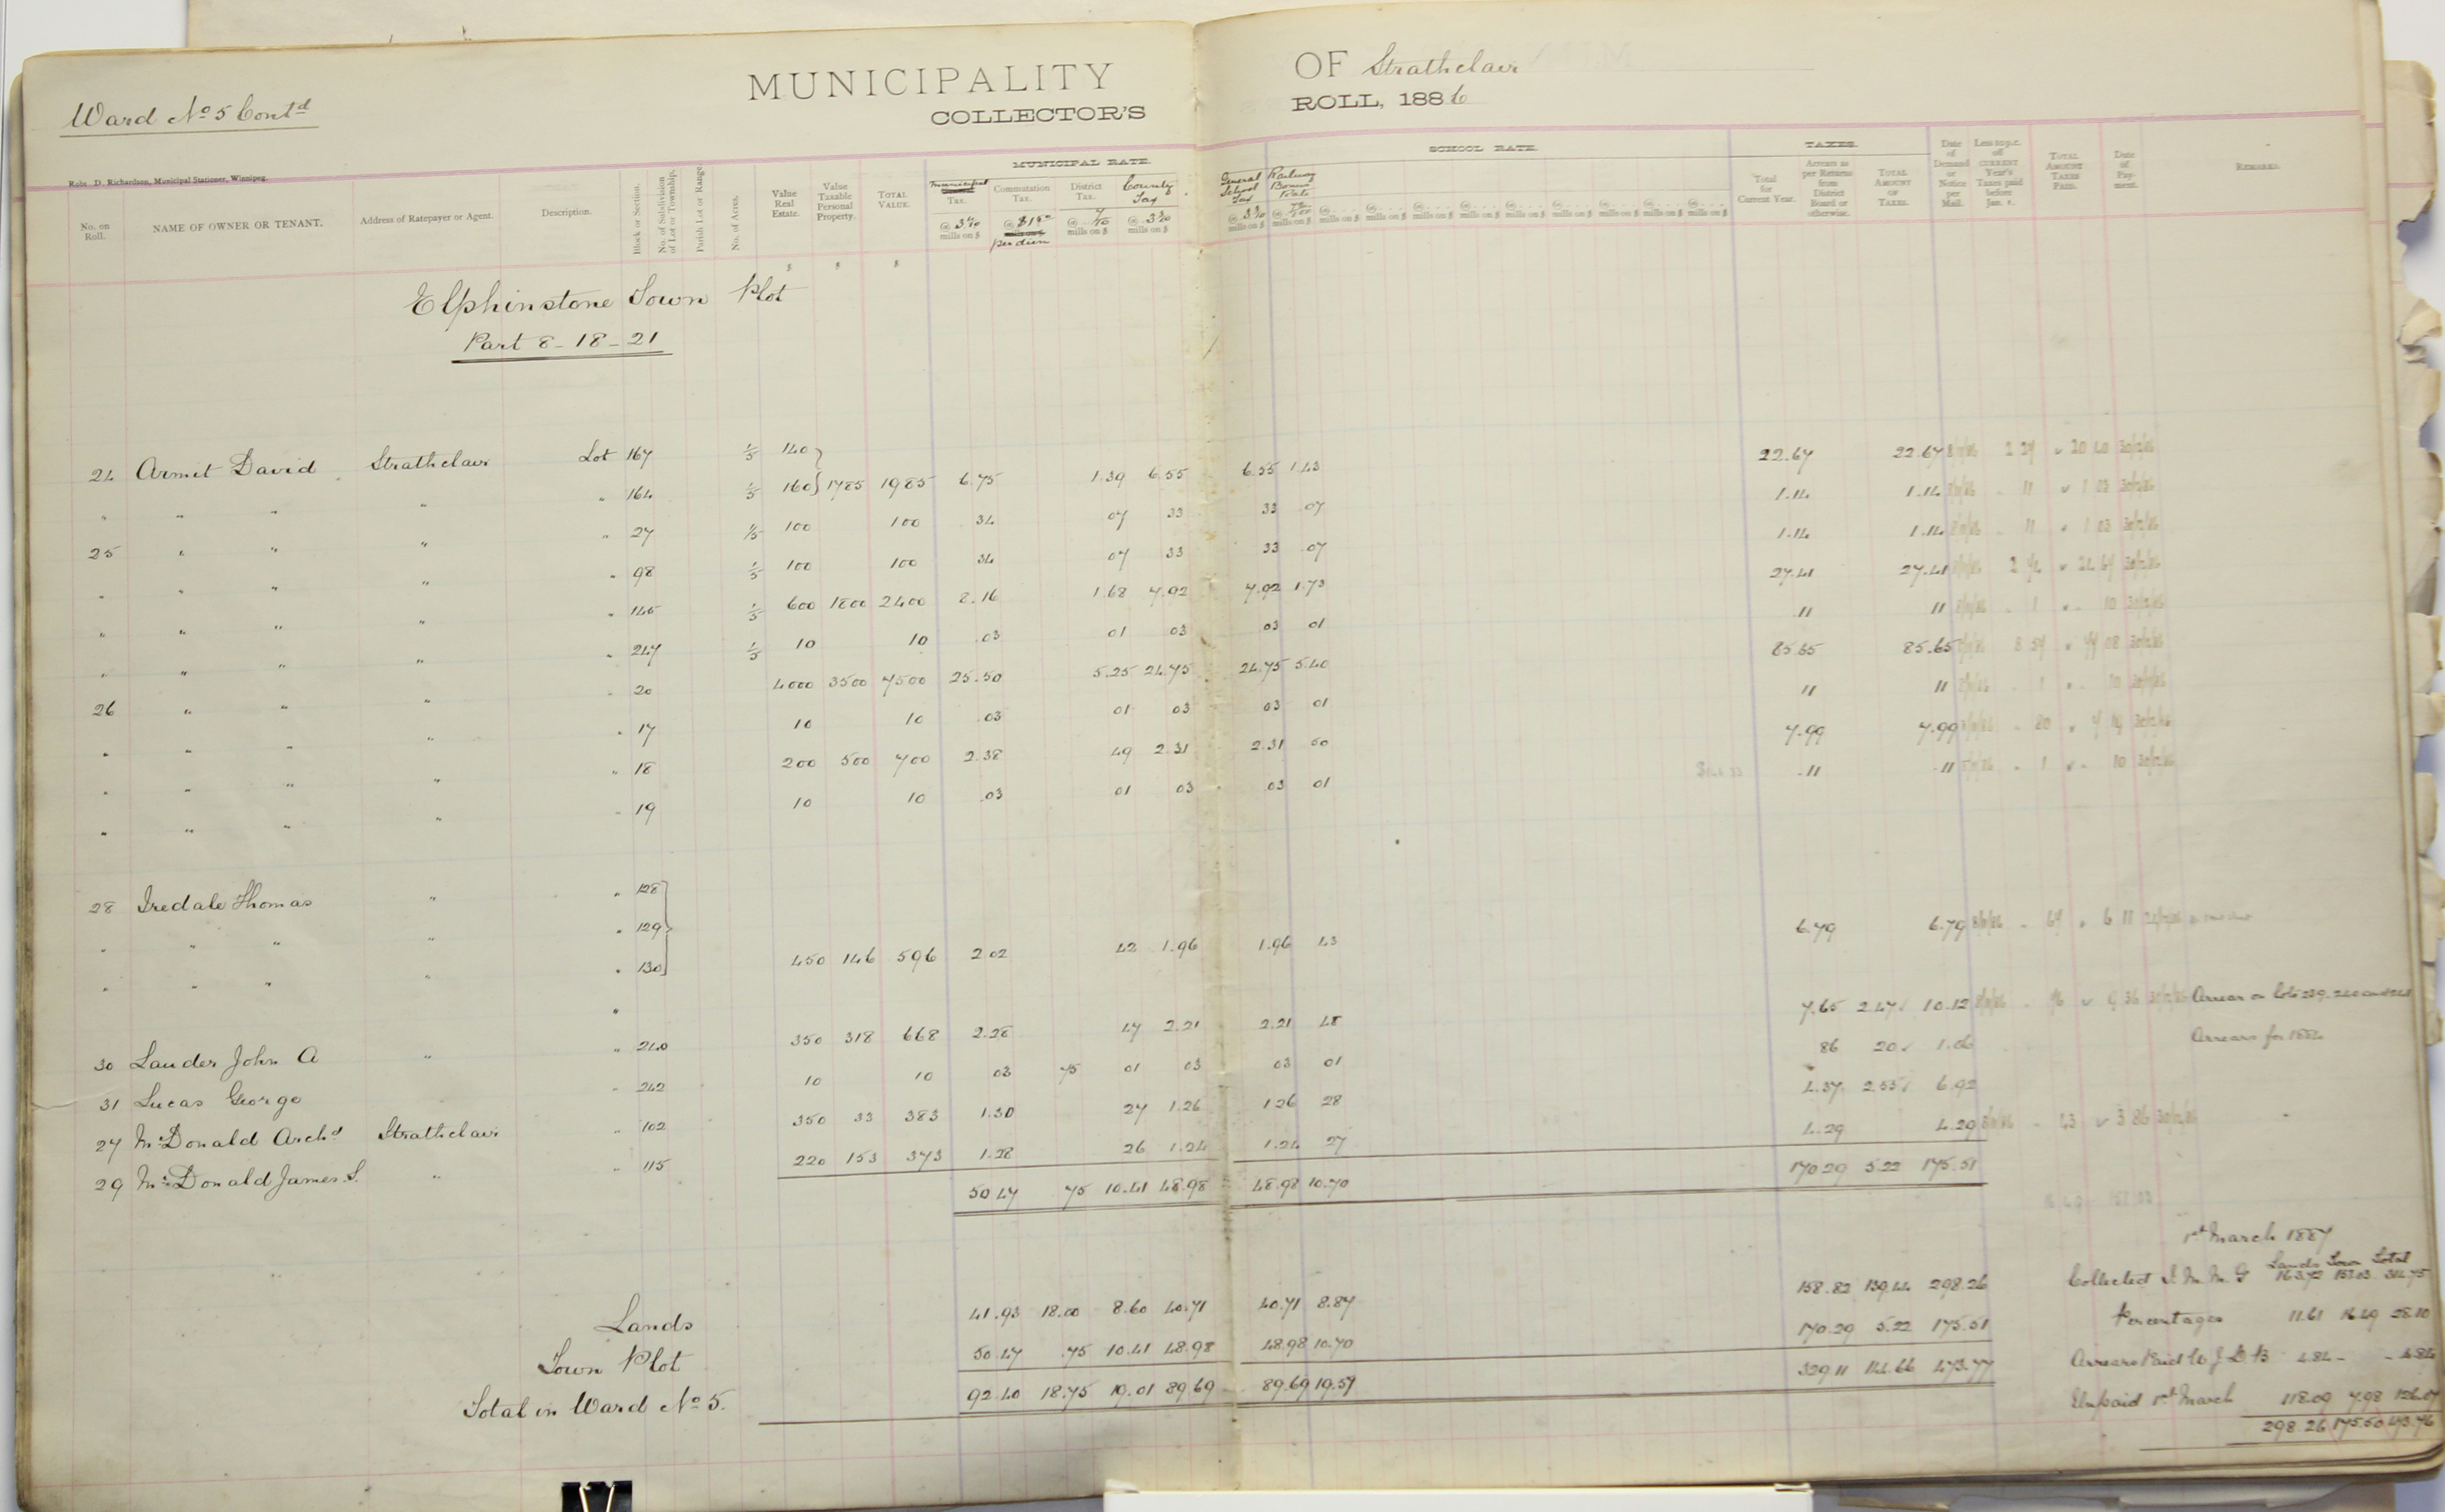 Ward No 5 Contd
MUNICIPALITY OF Strathclair
COLLECTOR'S ROLL, 1886
Robt. D. Richardson, Municipal Stationer, Winnipeg.
No. on Roll. NAME OF OWNER OR TENANT. Address of Ratepayer or Agent. Description. Block or Section. No. of Subdivision of Lot or Township. Parish Lot or Range. No. of Acres. Value Real Estate. Value Taxable Personal Property. TOTAL VALUE. MUNICIPAL RATE. Municipal Tax. @ 3 4/10 mills on $ Commutation Tax. @ $1.50 per diem District Tax. @ 7/10 mills on $ County Tax @ 3 3/10 mills on $ General School Tax @ 3 3/10 mills on $ Railway Bonus Rate mills on $ SCHOOL RATE. TAXES. Total for Current Year. Arrears as per Returns from District Board or otherwise. TOTAL AMOUNT OF TAXES. Date of Demand or Notice per Mail. Less 10 p.c. off CURRENT Year's Taxes paid before Jan. 1. TOTAL AMOUNT TAXES PAID. Date of Payment. REMARKS.
Elphinstone Town Plot
Part 8-18-21
24 Armit David Strathclair Lot 167 1/5 140 22.67 22.67 2 27 20 40
" " " " " 164 1/5 160 1785 1985 6.75 1.39 6.55 6.55 1.43 1.14 1.14 11 1 03
25 " " " " 27 1/5 100 100 34 07 33 33 07 1.14 1.14 11 1 03
" " " " " 98 1/5 100 100 34 07 33 33 07 27.41 27.41 2 74 24 67
" " " " " 145 1/5 600 1800 2400 8.16 1.68 7.92 7.92 1.73 11 11 1 10
" " " " " 247 1/5 10 10 .03 01 03 03 01 85.65 85.65 8 57 77 08
26 " " " " 20 4000 3500 7500 25.50 5.25 24.75 24.75 5.40 11 11 1 10
" " " " " 17 10 10 .03 01 03 03 01 7.99 7.99 80 7 19
" " " " " 18 200 500 700 2.38 49 2.31 2.31 50 .11 .11 1 10
" " " " " 19 10 10 .03 01 03 03 01
28 Iredale Thomas " " 128
" " " " " 129 6.79 6.79 67 6 11
" " " " " 130 450 146 596 2.02 42 1.96 1.96 43
" 7.65 2.47 10.12 76 9 36 Arrears on lots 239. 240 and 241
30 Lauder John A " " 240 350 318 668 2.28 47 2.21 2.21 48 86 20 1.06 Arrears for 1884
31 Lucas George " 242 10 10 03 75 01 03 03 01 4.37 2.55 6.92
27 McDonald Archd Strathclair " 102 350 33 383 1.30 27 1.26 1.26 28 4.29 4.29 43 3 86
29 McDonald James S. " " 115 220 153 373 1.28 26 1.24 1.24 27 170.29 5.22 175.51
50.47 75 10.41 48.98 48.98 10.70
1st March 1887
Lands Town Total
158.82 139.44 298.26 Collected 163.72 151.03 314.75
Lands 41.93 18.00 8.60 40.71 40.71 8.87 Percentages 11.61 16.49 28.10
Town Plot 50.47 .75 10.41 48.98 48.98 10.70 170.29 5.22 175.51 Arrears Paid to J D B 4.84 - - 4.84
Total in Ward No 5. 92.40 18.75 19.01 89.69 89.69 19.57 329.11 144.66 473.77 Unpaid 1st March 118.09 7.98 126.07
298.26 175.50 473.76